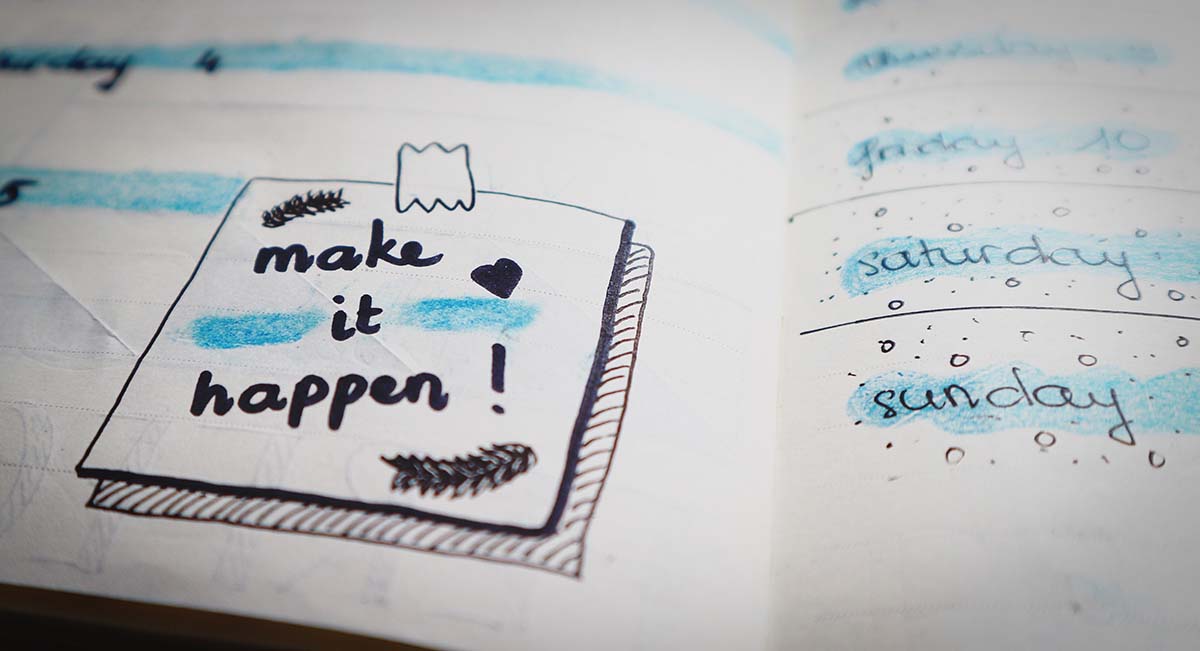 4
5
make
it
happen !
friday 10
saturday
sunday